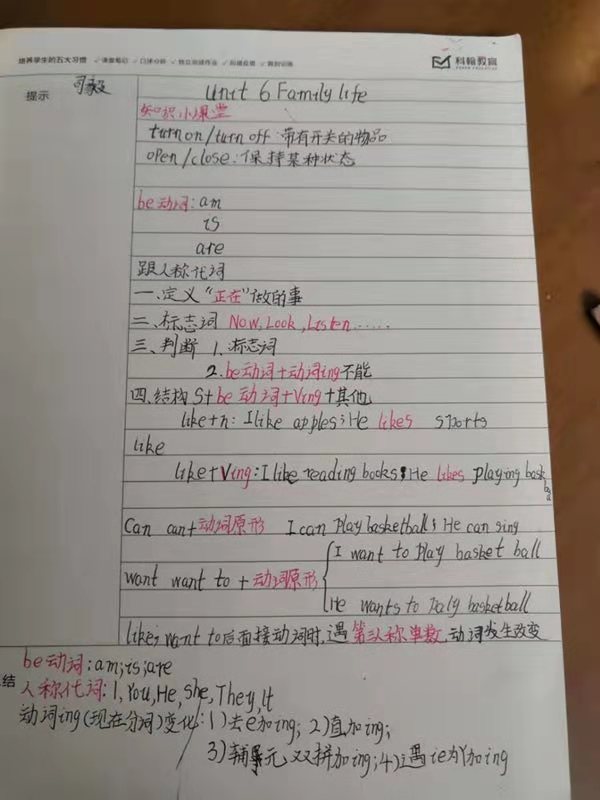 培养学生的五大习惯 ✓课堂笔记 ✓口译分析 ✓独立完成作业 ✓ ✓
科翰教育
提示
司毅
Unit 6 Family life
知识小课堂
turn on/turn off 带有开关的物品
open/close:保持某种状态
be动词:am
is
are
跟人称代词
一、定义“正在”做的事
二、标志词 Now,Look,Listen......
三、判断 1.标志词
2.be动词+动词ing不能
四.结构 S+be动词+Ving+其他
like+n: I like apples;He likes sports
like
like+Ving:I like reading books;He likes playing bask
Can can+动词原形 I can play basketball; He can sing
I want to play basket ball
want want to + 动词原形
He wants to paly basketball
like;want to后面接动词时,遇第三人称单数,动词发生改变
结
be动词:am;is;are
人称代词:I,You,He,she,They,It
动词ing(现在分词)变化:1)去e加ing; 2)直加ing;
3)辅元,双拼加ing;4)遇ie为Y加ing